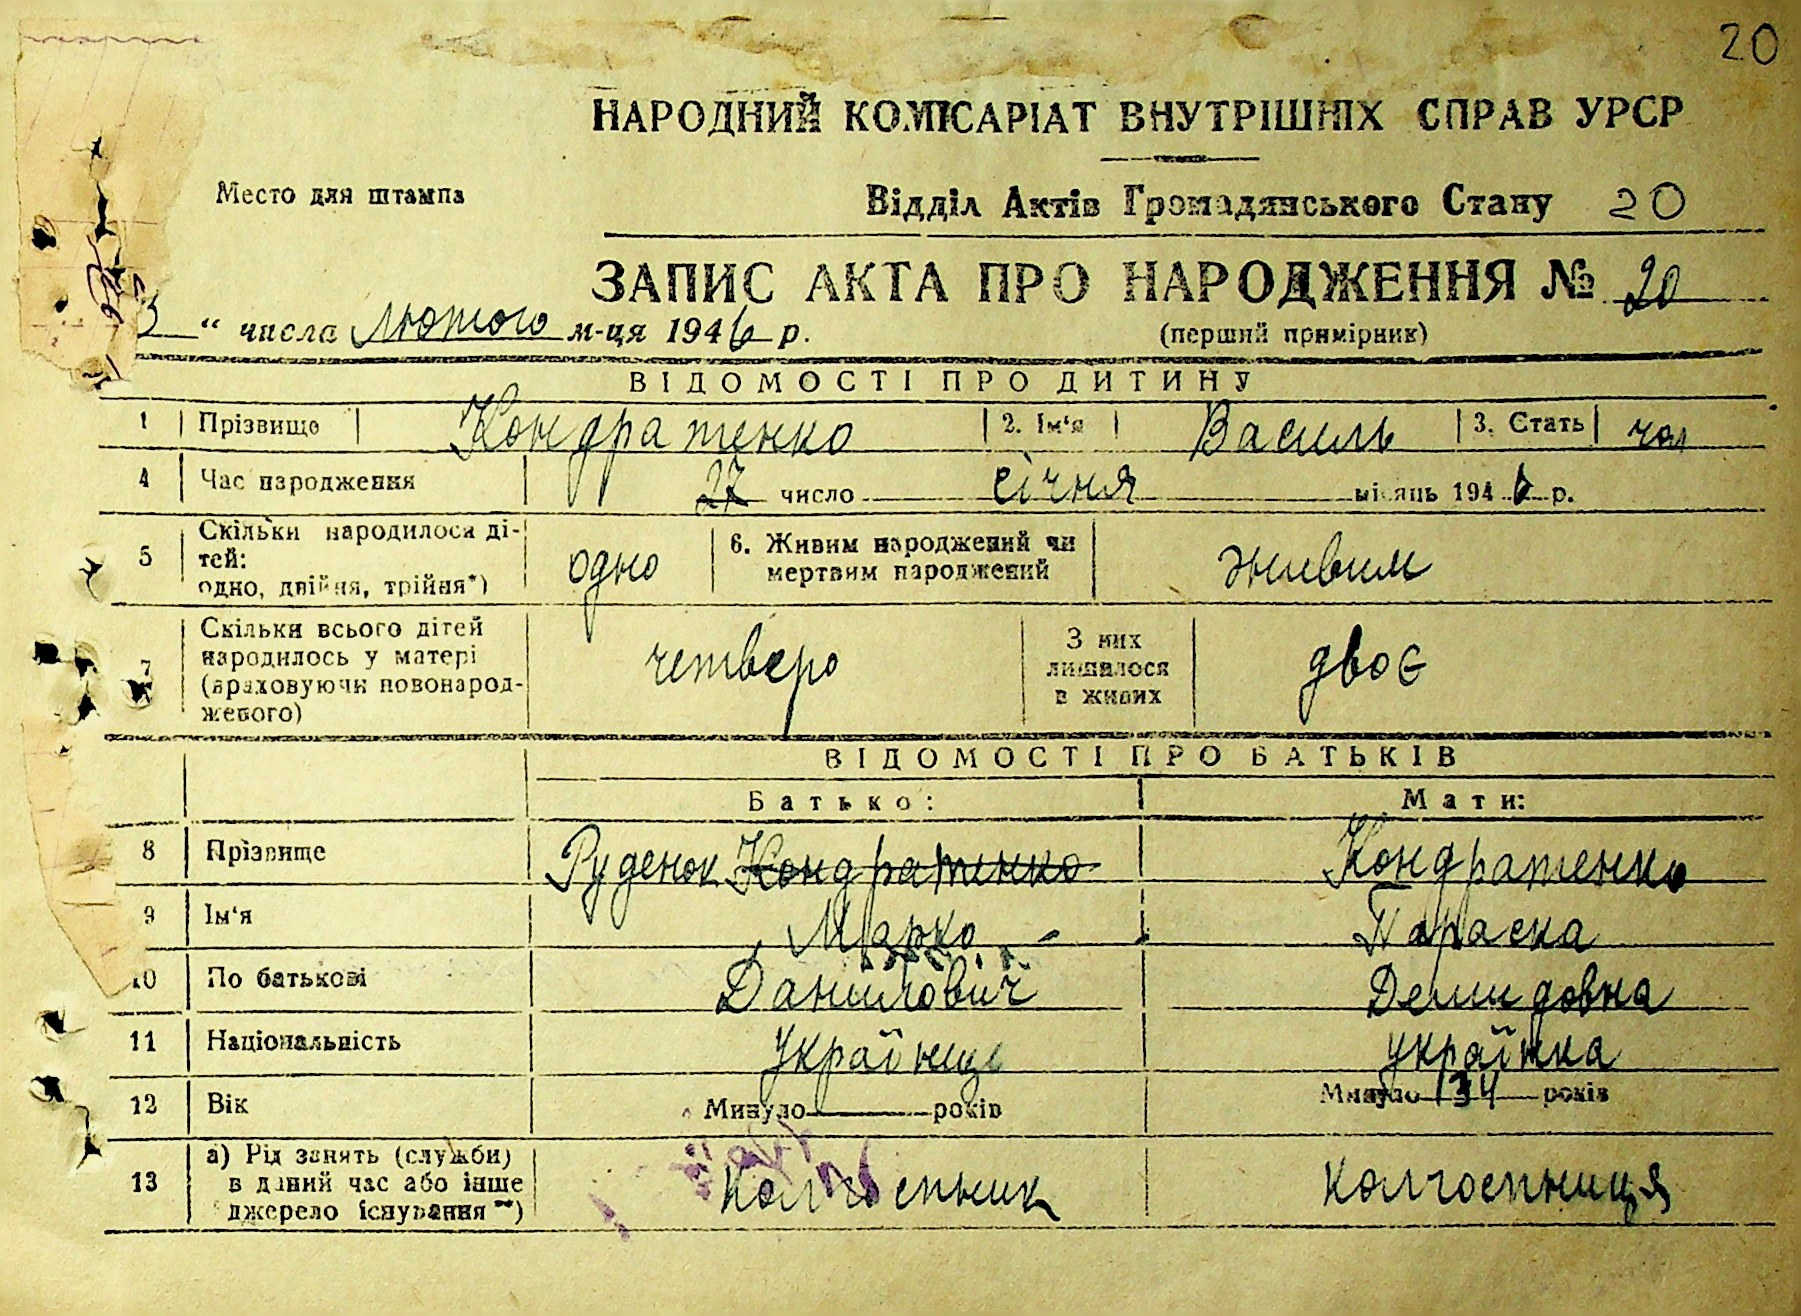 20
НАРОДНИЙ КОМІСАРІАТ ВНУТРІШНІХ СПРАВ УРСР
Место для штампа
Відділ Актів Громадянського Стану 20
ЗАПИС АКТА ПРО НАРОДЖЕННЯ № 20
3 " числа лютого м-ця 1946 р. (перший примірник)
ВІДОМОСТІ ПРО ДИТИНУ
1 Прізвище Кондратенко 2. Ім'я Василь 3. Стать чол
4 Час народження 27 число січня місяць 1946 р.
5 Скільки народилося ді-
тей:
одно, двійня, трійня*) одно 6. Живим народжений чи
мертвим народжений живим
7 Скільки всього дітей
народилось у матері
(враховуючи новонарод-
женого) четверо З них
лишилося
в живих двоє
ВІДОМОСТІ ПРО БАТЬКІВ
Батько: Мати:
8 Прізвище Руденок Кондратенко Кондратенко
9 Ім'я Марко Параска
10 По батькові Данилович Демидовна
11 Національність Українець українка
12 Вік Минуло років Минуло 34 років
13 а) Рід занять (служби)
в даний час або інше
джерело існування**) Колгоспник колгоспниця